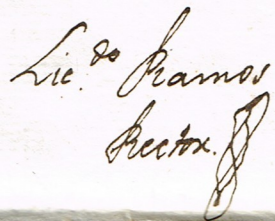 Lic.do Ramos
Rector.